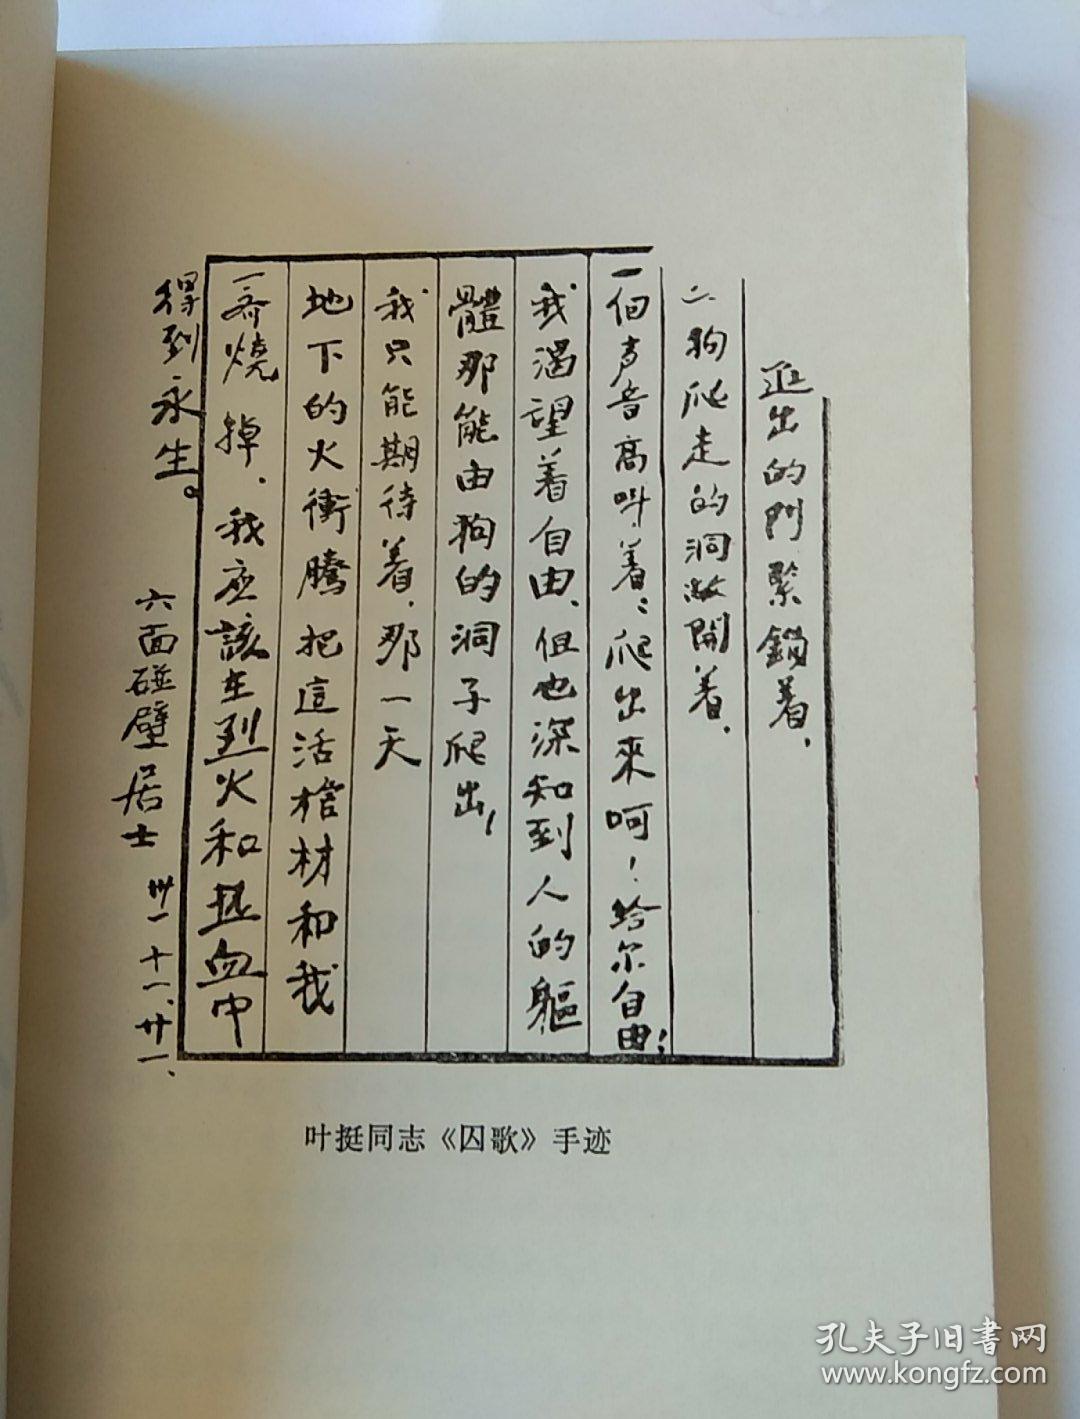 進出的門緊鎖着，
为狗爬走的洞敞開着，
一個声音高叫着：爬出來呵！给尔自由！
我渴望着自由、但也深知到人的軀
體那能由狗的洞子爬出！
我只能期待着，那一天
地下的火衝騰把這活棺材和我
一齐燒掉，我应該在烈火和热血中
得到永生。
六面碰壁居士 卅一 十一、廿一、
叶挺同志《囚歌》手迹
孔夫子旧書网
www.kongfz.com